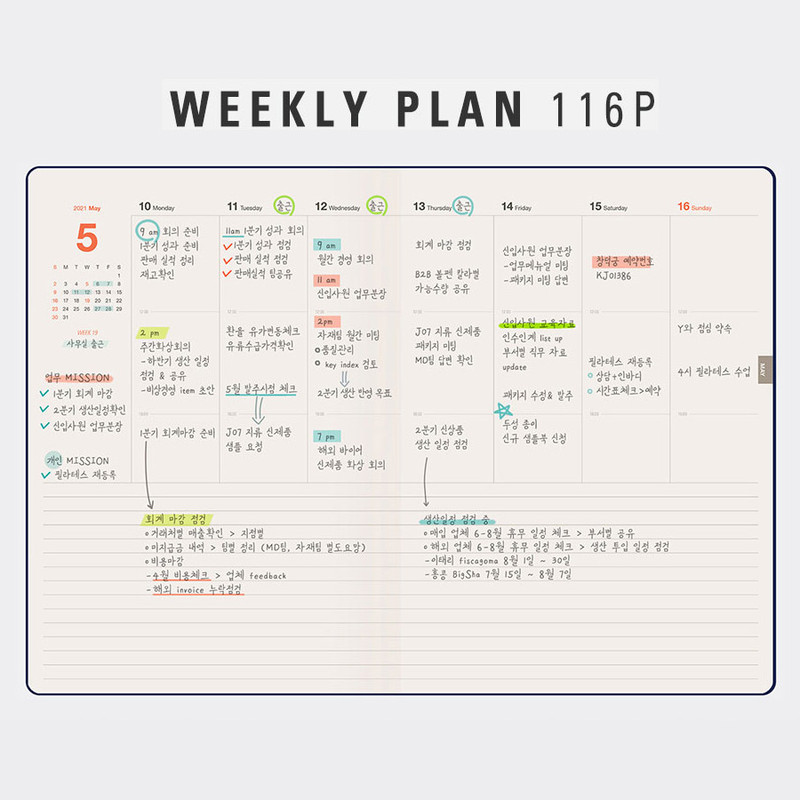 WEEKLY PLAN 116P
2021 May
5
S M T W T F S
1
2 3 4 5 6 7 8
9 10 11 12 13 14 15
16 17 18 19 20 21 22
23 24 25 26 27 28 29
30 31
WEEK 19
사무실 출근
업무 MISSION
1분기 회계 마감
2분기 생산일정확인
신입사원 업무분장
개인 MISSION
필라테스 재등록
10 Monday
9 am 회의 준비
1분기 성과 준비
판매 실적 정리
재고확인
2 pm
주간화상회의
-하반기 생산 일정
점검 & 공유
-비상경영 item 초안
1분기 회계마감 준비
11 Tuesday 출근
11am 1분기 성과 회의
1분기 성과 점검
판매 실적 점검
판매실적 팀공유
환율 유가변동체크
유류수급가격확인
5월 발주시점 체크
J07 지류 신제품
샘플 요청
12 Wednesday 출근
9 am
월간 경영 회의
11 am
신입사원 업무분장
2pm
자재팀 월간 미팅
품질관리
key index 검토
2분기 생산 반영 목표
7 pm
해외 바이어
신제품 화상 회의
13 Thursday 출근
회계 마감 점검
B2B 볼펜 칼라별
가능수량 공유
J07 지류 신제품
패키지 미팅
MD팀 답변 확인
2분기 신상품
생산 일정 점검
14 Friday
신입사원 업무분장
-업무메뉴얼 미팅
-패키지 미팅 답변
신입사원 교육자료
인수인계 list up
부서별 직무 자료
update
패키지 수정& 발주
두성 송이
신규 샘플북 신청
15 Saturday
창덕궁 예약번호
KJ01386
필라테스 재등록
상담+인바디
시간표체크>예약
16 Sunday
Y와 점심 약속
4시 필라테스 수업
MAY
회계 마감 점검
거래처별 매출확인 > 지정별
미지급금 내역 > 팀별 정리 (MD팀, 자재팀 별도요망)
비용마감
-4월 비용체크 > 업체 feedback
-해외 invoice 누락점검
생산일정 점검 중
매입 업체 6-8월 휴무 일정 체크 > 부서별 공유
해외 업체 6-8월 휴무 일정 체크 > 생산 투입 일정 점검
-이태리 fiscagoma 8월 1일 ~ 30일
-홍콩 BigSha 7월 15일 ~ 8월 7일